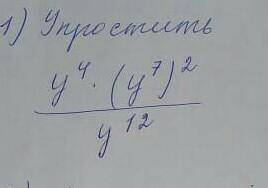 1) Упростить
y⁴ · (y⁷)²
y¹²